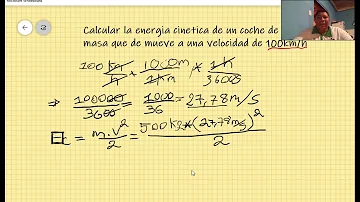 Calcular la energia cinetica de un coche de
masa que de mueve a una velocidad de 100km/h
100 km/h * 1000m/1km * 1h/3600s
⇒ 100000/3600 = 1000/36 = 27,78 m/s
Ec = m.v²/2 = 500kg*(27,78m/s)²/2